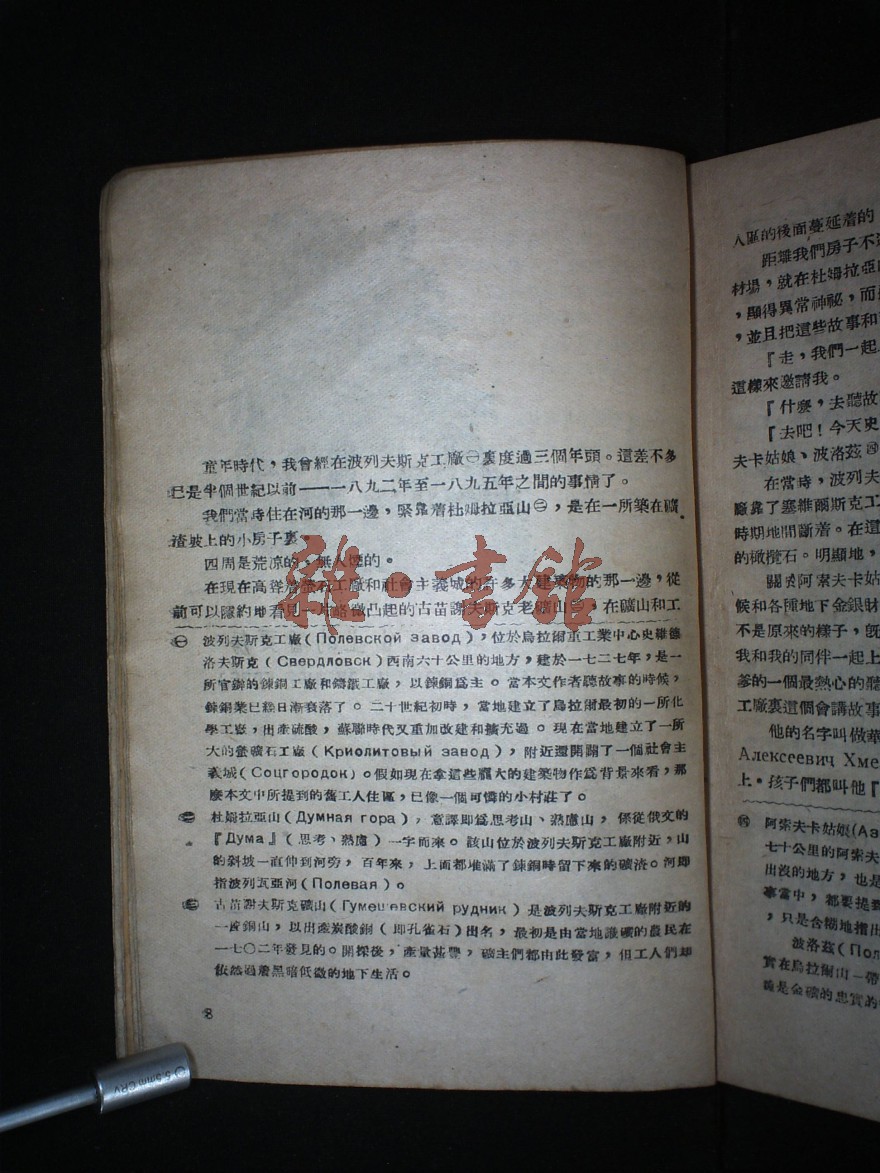 童年時代，我曾經在波列夫斯克工廠㊀裏度過三個年頭。這差不多
已是半個世紀以前——一八九二年至一八九五年之間的事情了。
我們當時住在河的那一邊，緊靠着杜姆拉亞山㊁，是在一所築在礦
渣坡上的小房子裏。
四周是荒凉的，無人煙的。
在現在高聳着螢石工廠和社會主義城的許多大建築物的那一邊，從
前可以隱約地看見一片略微凸起的古苗謝夫斯克老礦山㊂，在礦山和工
㊀ 波列夫斯克工廠(Полевской завод)，位於烏拉爾重工業中心史維德
洛夫斯克(Свердловск)西南六十公里的地方，建於一七二七年，是一
所官辦的鍊銅工廠和鑄鐵工廠，以鍊銅爲主。當本文作者聽故事的時候，
鍊銅業已經日漸衰落了。二十世紀初時，當地建立了烏拉爾最初的一所化
學工廠，出產硫酸，蘇聯時代又重加改建和擴充過。現在當地建立了一所
大的螢礦石工廠(Криолитовый завод)，附近還開闢了一個社會主
義城(Соцгородок)。假如現在拿這些龐大的建築物作爲背景來看，那
麼本文中所提到的舊工人住區，已像一個可憐的小村莊了。
㊁ 杜姆拉亞山(Думная гора)，意譯即爲思考山、熟慮山，係從俄文的
『Дума』(思考、熟慮)一字而來。該山位於波列夫斯克工廠附近，山
的斜坡一直伸到河旁，百年來，上面都堆滿了鍊銅時留下來的礦渣。河即
指波列瓦亞河(Полевая)。
㊂ 古苗謝夫斯克礦山(Гумешевский рудник)是波列夫斯克工廠附近的
一座銅山，以出產炭酸銅(即孔雀石)出名，最初是由當地識礦的農民在
一七〇二年發見的。開採後，產量甚豐，礦主們都由此發富，但工人們却
依然過着黑暗低微的地下生活。
8
人區的後面蔓延着的
距離我們房子不
材場，就在杜姆拉亞
，顯得異常神祕，而
，並且把這些故事和
『走，我們一起
這樣來邀請我。
『什麼，去聽故
『去吧！今天史
夫卡姑娘、波洛茲㊃
在當時，波列夫
廠靠了塞維爾斯克工
時期地間斷着。在這
的橄欖石。明顯地，
關於阿索夫卡姑
候和各種地下金銀財
不是原來的樣子，旣
我和我的同伴一起上
爹的一個最熱心的聽
工廠裏這個會講故事
他的名字叫做華
Алексеевич Хме
上。孩子們都叫他『
阿索夫卡姑娘(Аз
七十公里的阿索夫
出沒的地方，也是
事當中，都要提
，只是含糊地指出
波洛茲(Пол
實在烏拉爾山一帶
雜·書館
5.5mm CRV